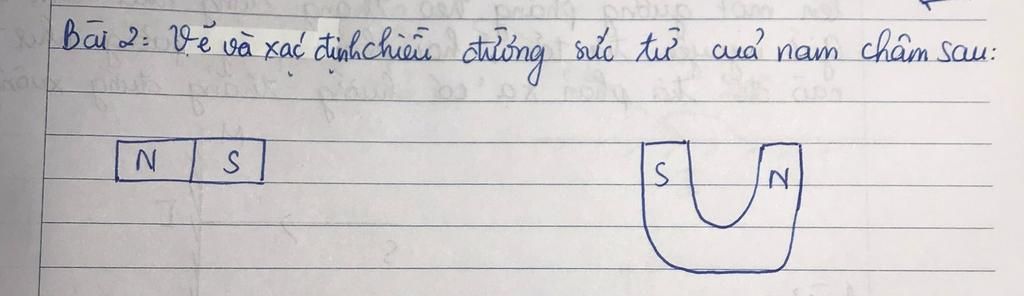 Bài 2: Vẽ và xác định chiều đường sức từ cuả nam châm sau:
N S
S N